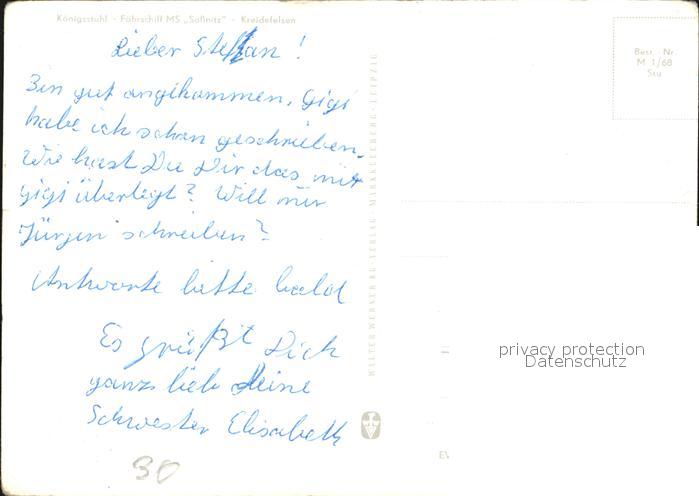 Königsstuhl - Fährschiff MS „Saßnitz" - Kreidefelsen
Lieber Steffan!
Bin gut angikommen, Gigi
habe ich schon geschrieben.
Wie hast Du Dir das mit
Gigi überlegt? Will mir
Jürgen schreiben?
Antworte bitte bald
Es grüßt Dich
ganz lieb Deine
Schwester Elisabeth
30
WALTER WERNER BG VERLAG · MARKKLEEBERG · LEIPZIG
Best. Nr.
M 1/68
Stu
privacy protection
Datenschutz